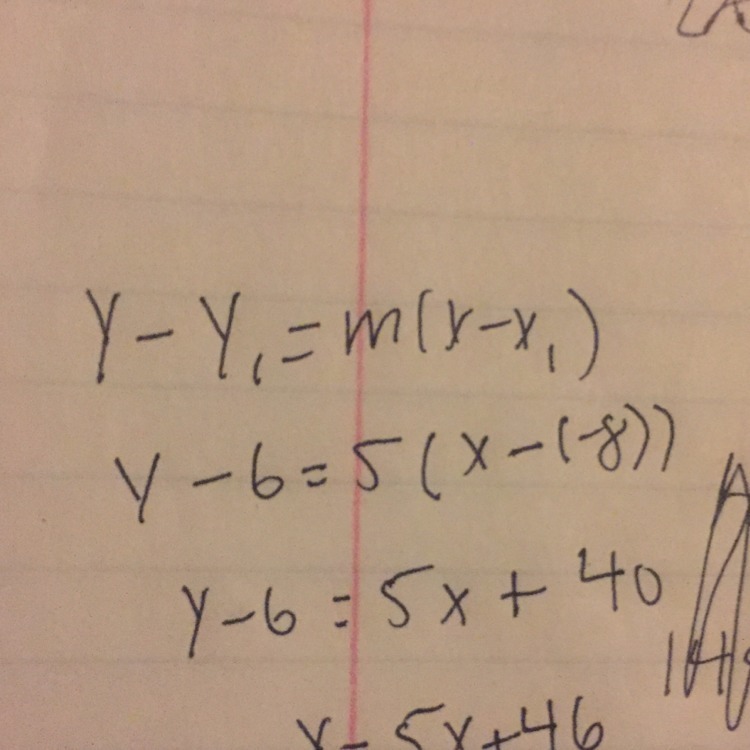 y - y₁ = m(x - x₁)
y - 6 = 5(x - (-8))
y - 6 = 5x + 40
y = 5x + 46